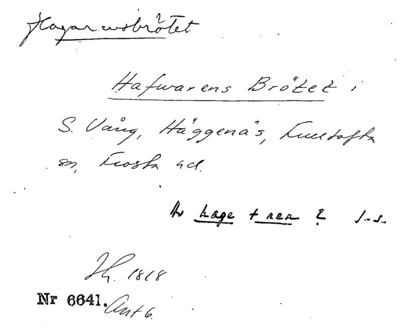 Hagarensbrötet
Hafwarens Brötet i
S. Vång, Häggenäs, Fulltofta
sn, Frosta hd.
Av hage + ren ? J-s.
Jh. 1818
Nr 6641. Ant 6.